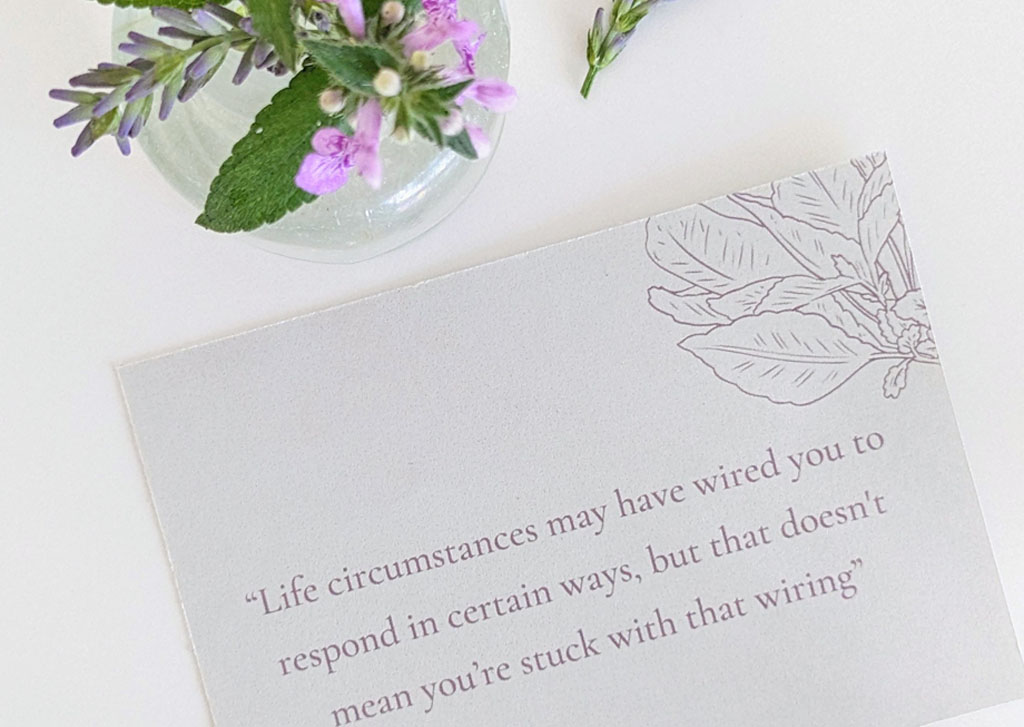 “Life circumstances may have wired you to
respond in certain ways, but that doesn't
mean you’re stuck with that wiring”